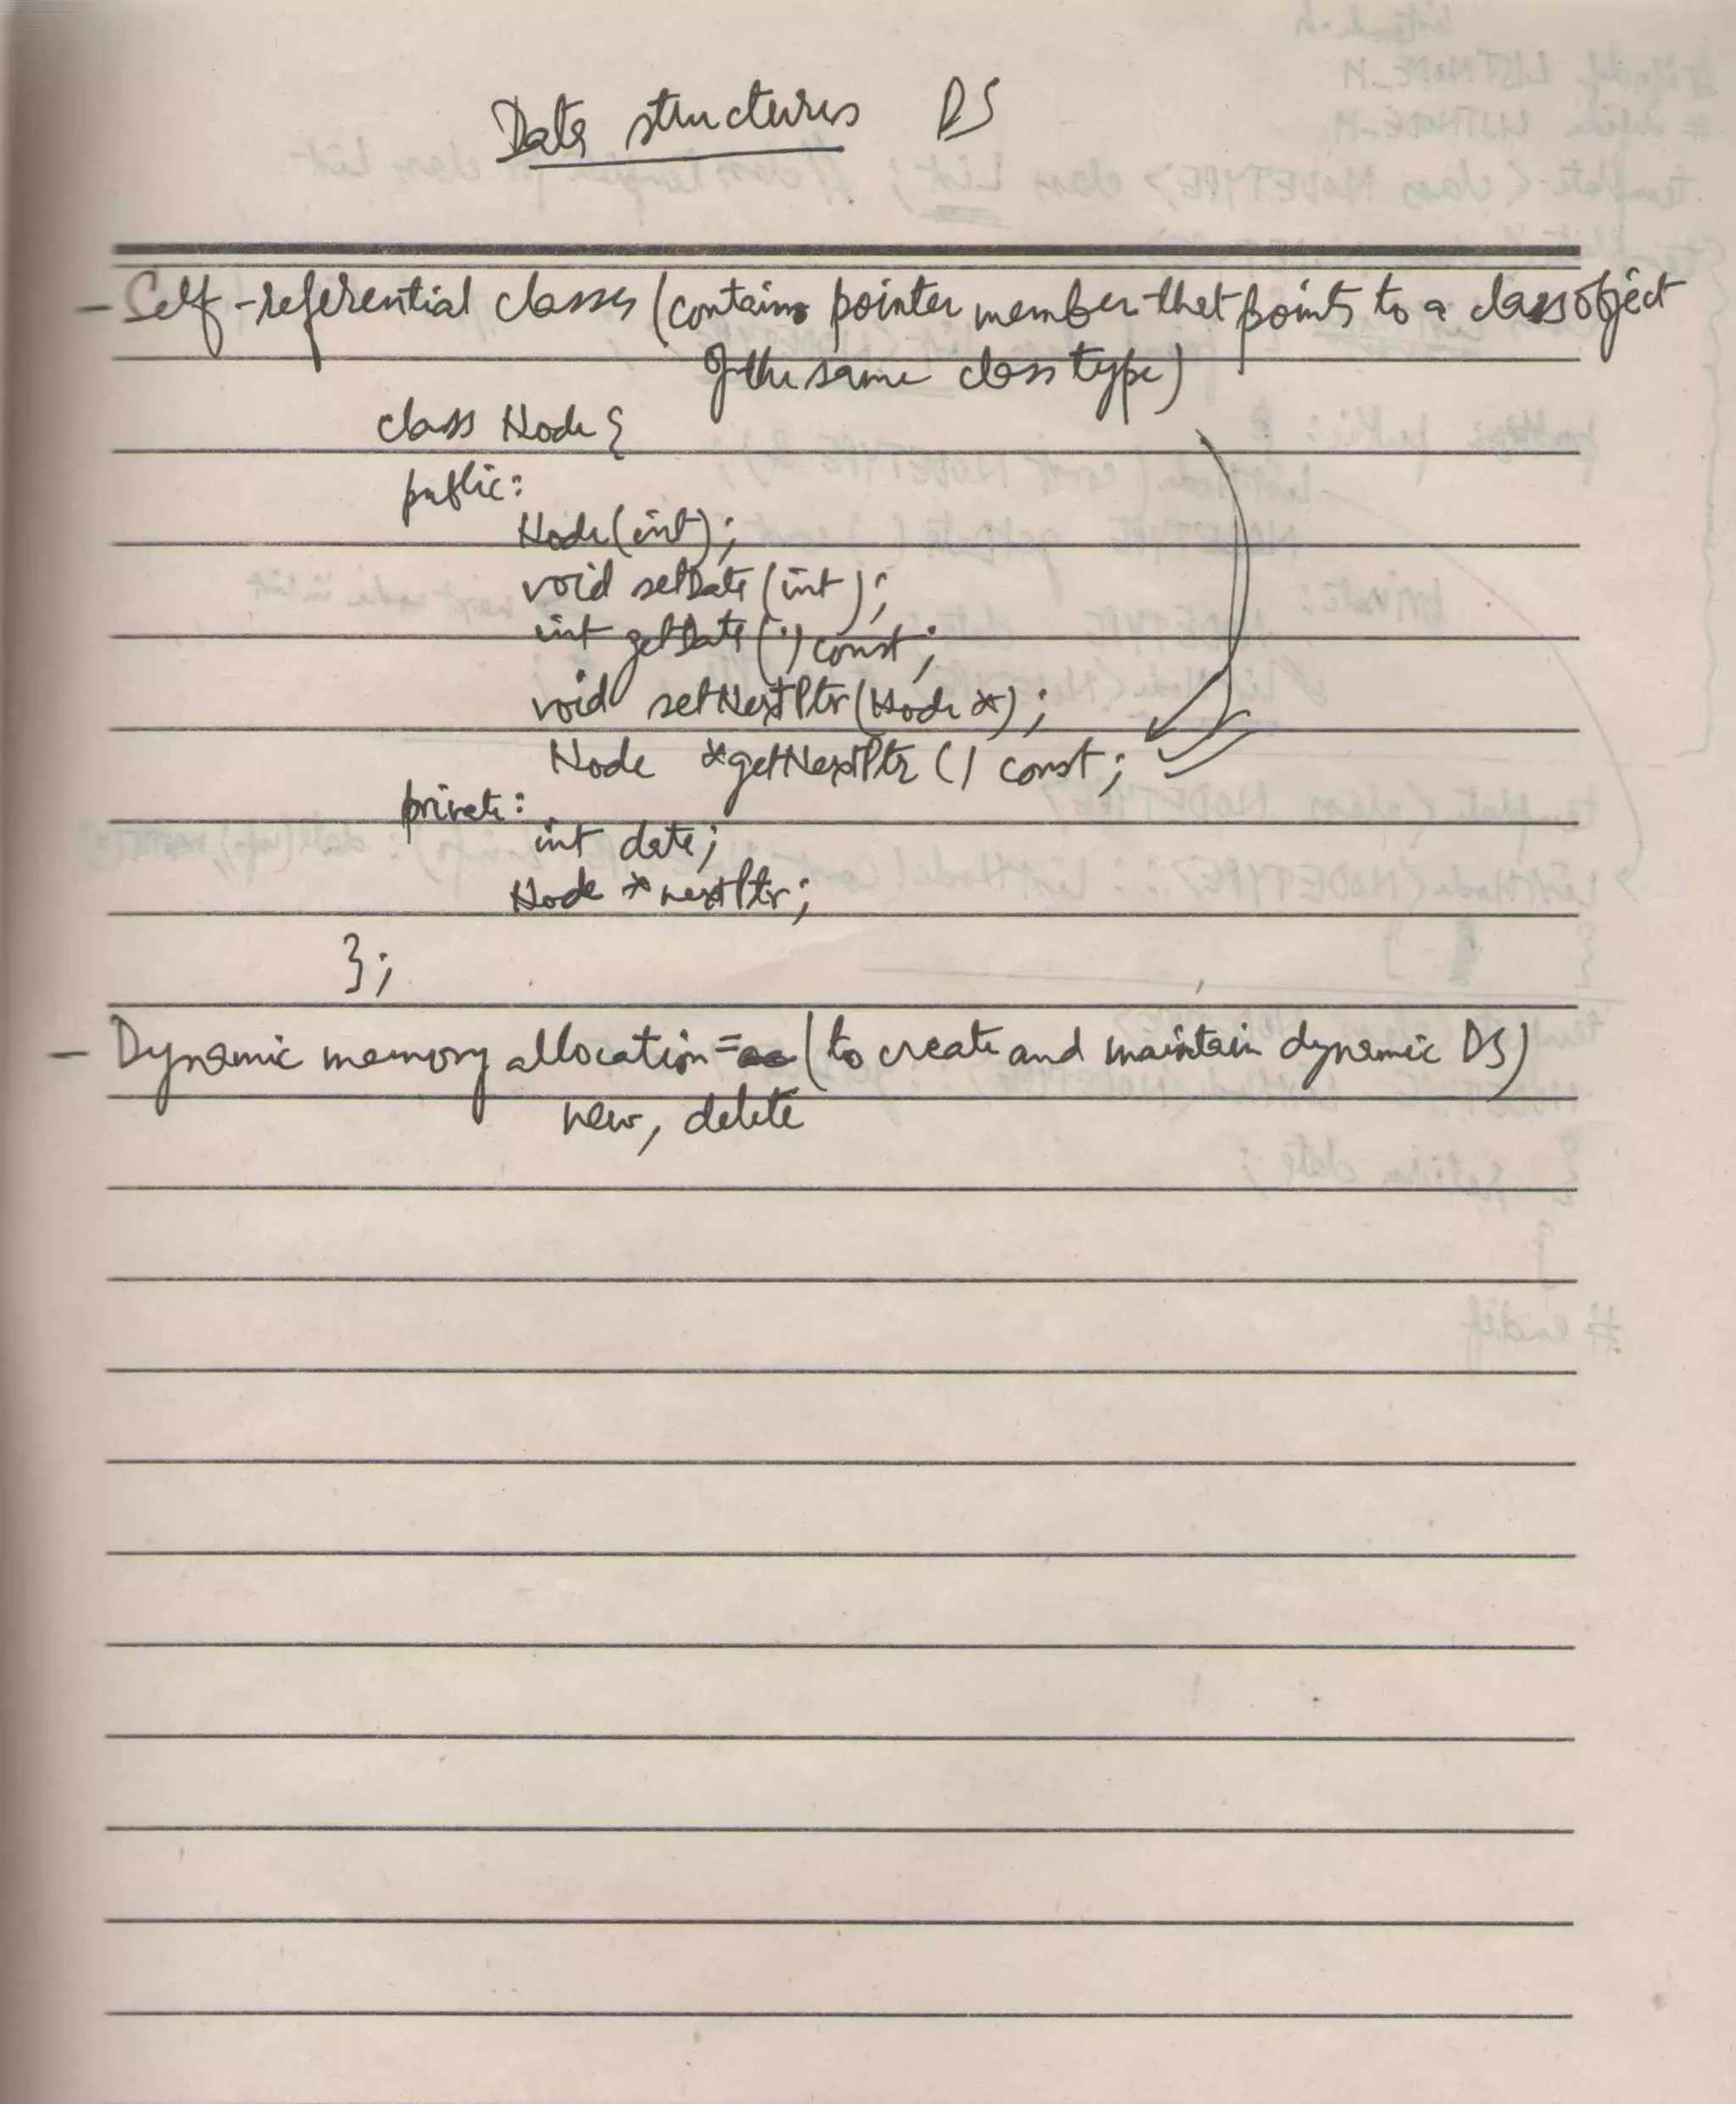 Data structures DS
- Self-referential classes (contains pointer member that points to a class object
of the same class type)
class Node {
public:
Node(int);
void setData(int);
int getData() const;
void setNextPtr(Node *);
Node *getNextPtr() const;
private:
int data;
Node *nextPtr;
};
- Dynamic memory allocation = (to create and maintain dynamic DS)
new, delete